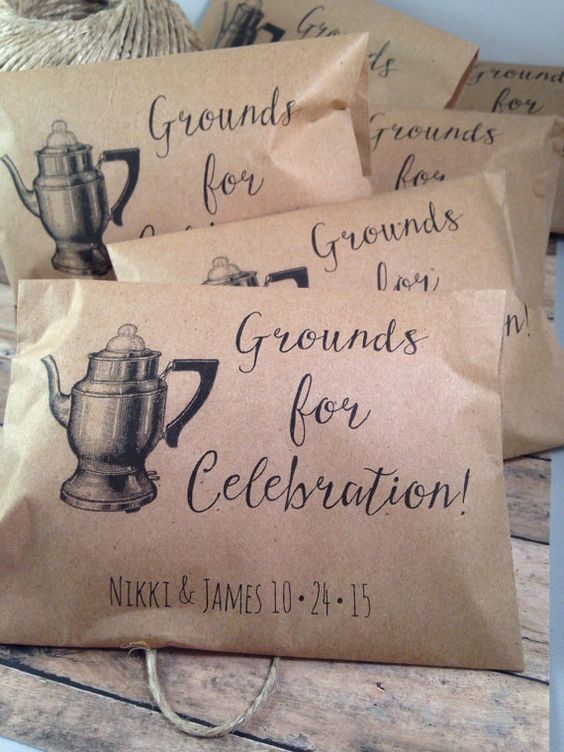 Grounds
for
Grounds
for
Grounds
for
Grounds
for
n!
Grounds
for
Celebration!
NIKKI & JAMES 10•24•15